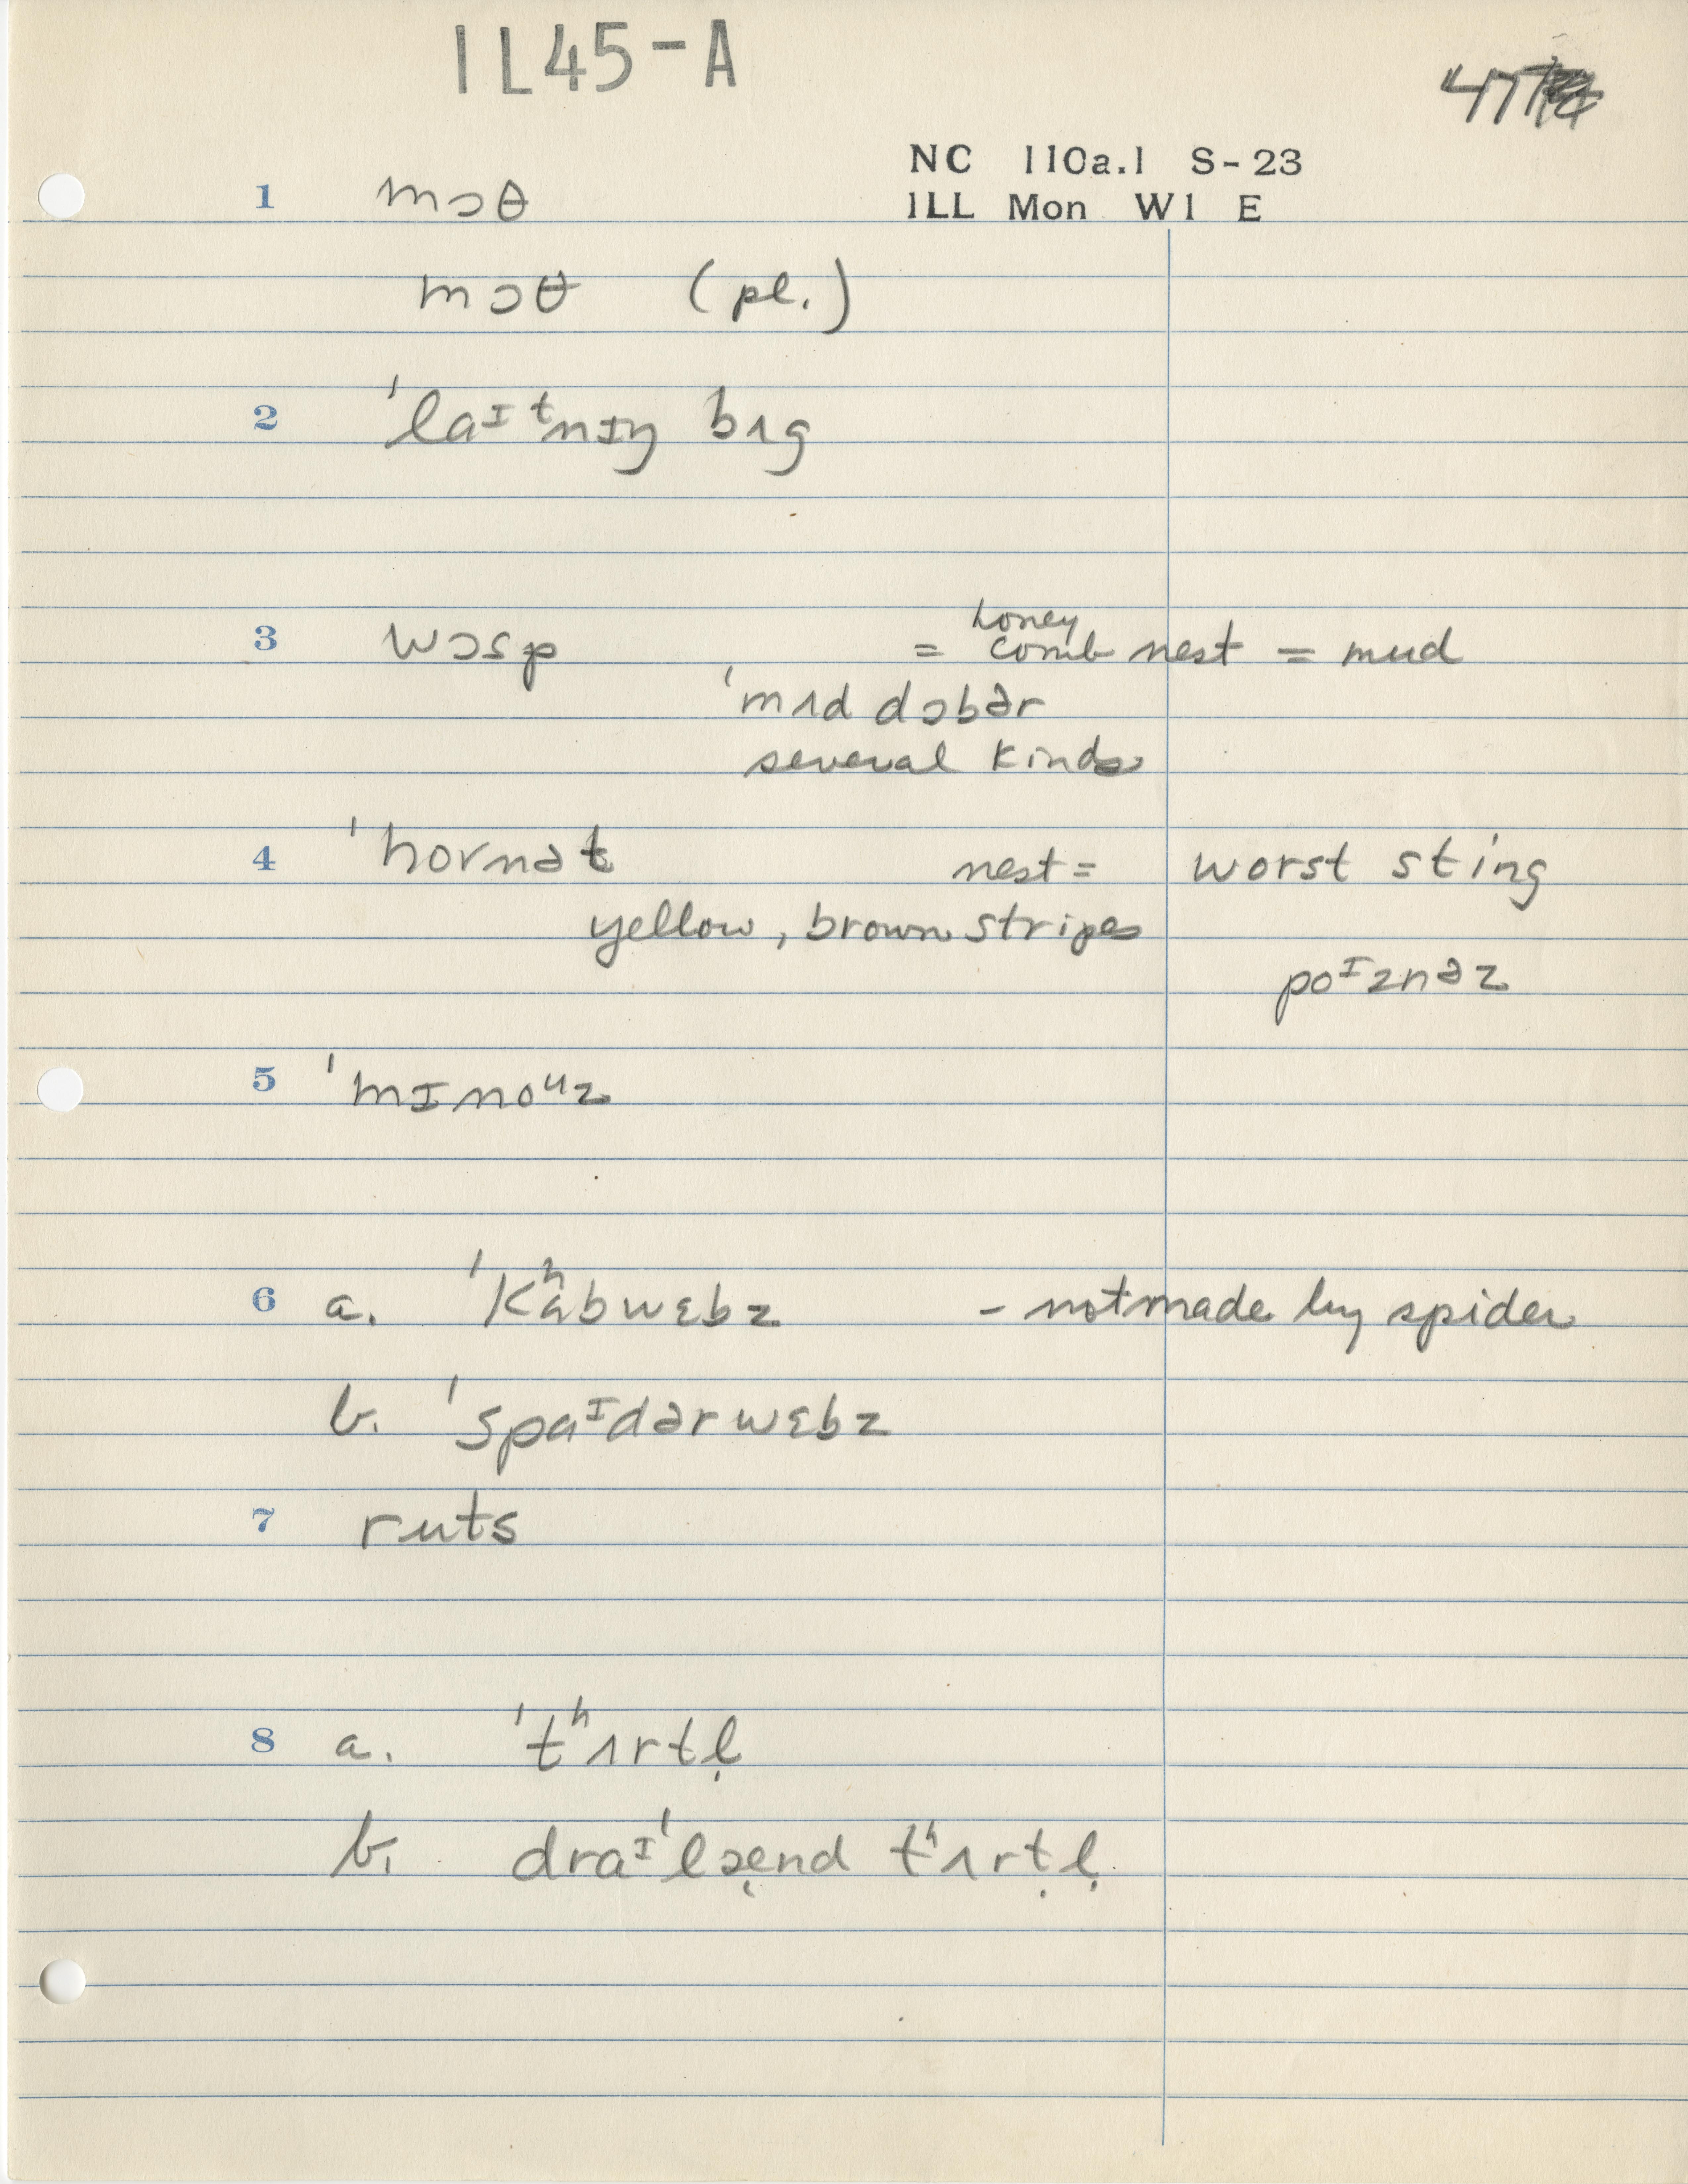 IL45-A
47
NC 110a.1 S-23
ILL Mon W1 E
1 mɔθ
mɔθ (pl.)
2 ˈlaᴵᵗnɪŋ bʌg
3 wɔsp = honey comb nest = mud
ˈmʌd dɔbər
several kinds
4 ˈhornət nest = worst sting
yellow, brown stripes
poᴵznəz
5 ˈmɪnoᵘz
6 a. ˈkʰabwɛbz - not made by spider
b. ˈspaᴵdərwɛbz
7 ruts
8 a. ˈtʰʌrtl̩
b. draᴵˈlæ̨nd tʰʌrṭl̩